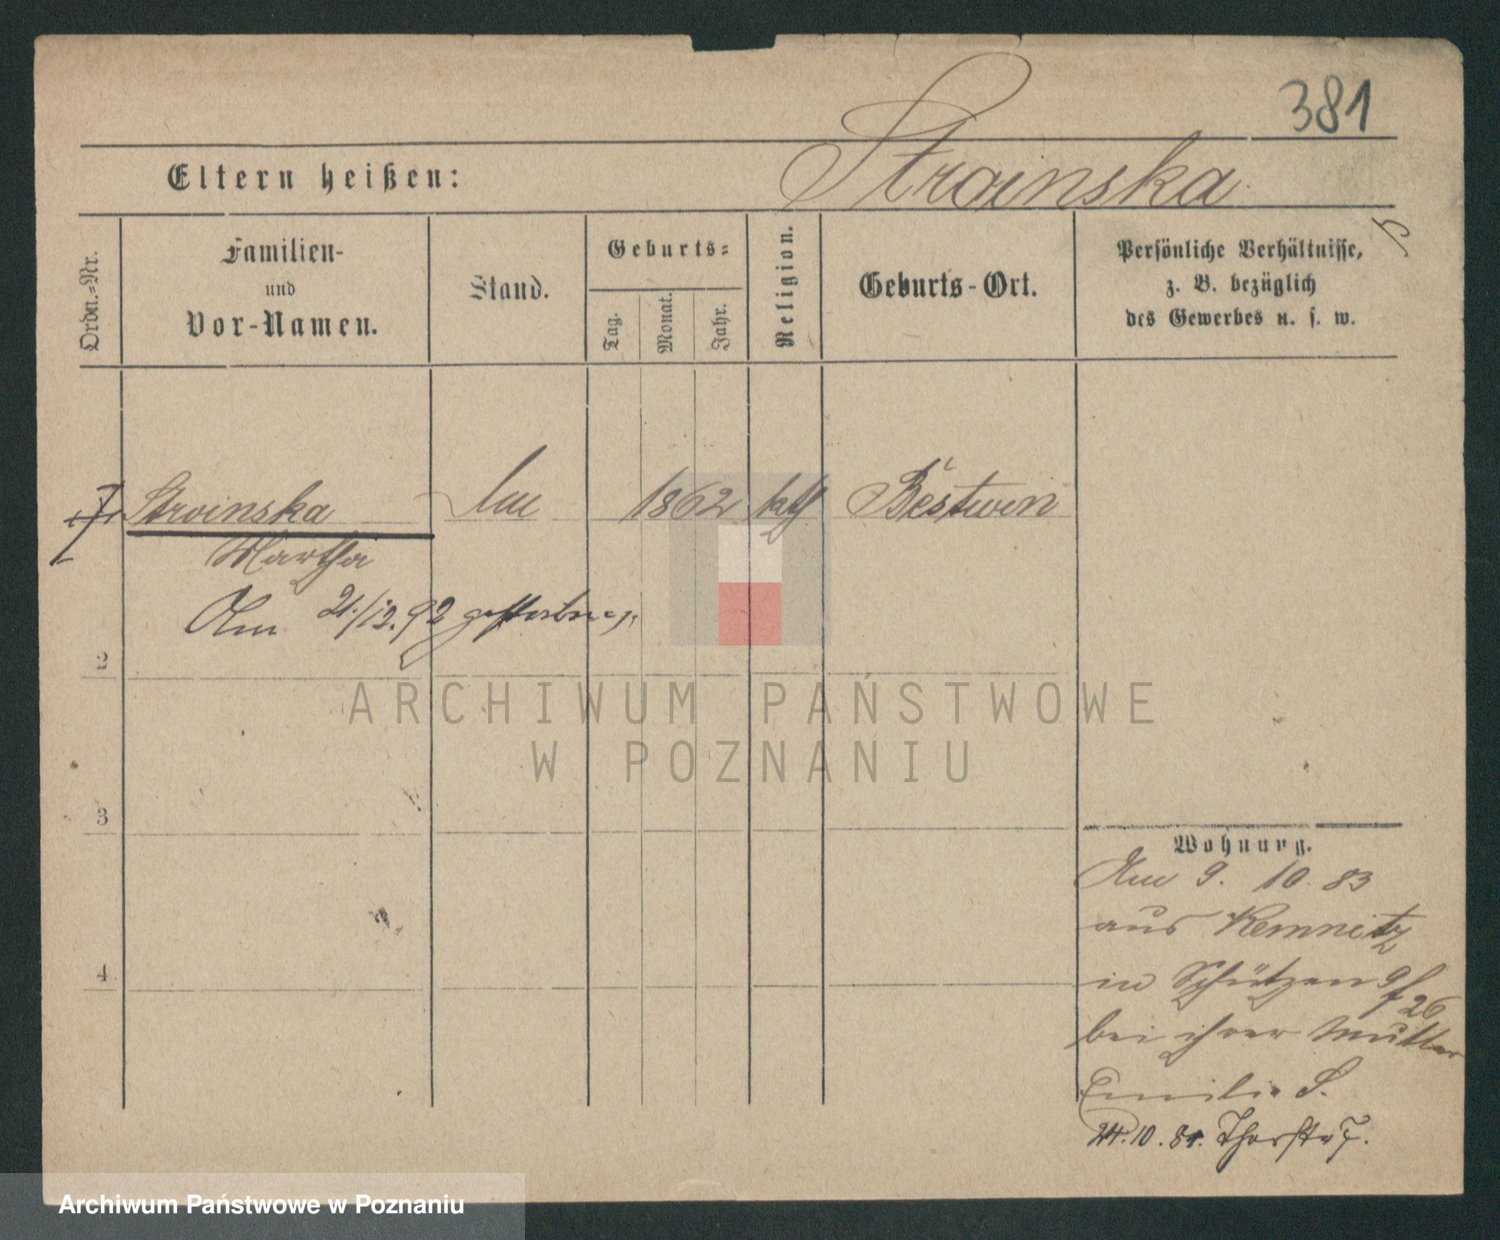 381
Stroinska
Eltern heißen:
Ordn.-Nr.
Familien-
und
Vor-Namen.
Stand.
Geburts-
Tag.
Monat.
Jahr.
Religion.
Geburts-Ort.
Persönliche Verhältnisse,
z. B. bezüglich
des Gewerbes u. s. w.
Stroinska 1862 kth Bestwin
Martha
Am 21/12.92 gestorben
2
ARCHIWUM PAŃSTWOWE
W POZNANIU
3
4
Wohnung.
Am 9. 10 83
aus Kemnitz
in Schützen 26
bei ihrer Mutter
Emilie S.
24.10.84. Thorstr 7.
Archiwum Państwowe w Poznaniu